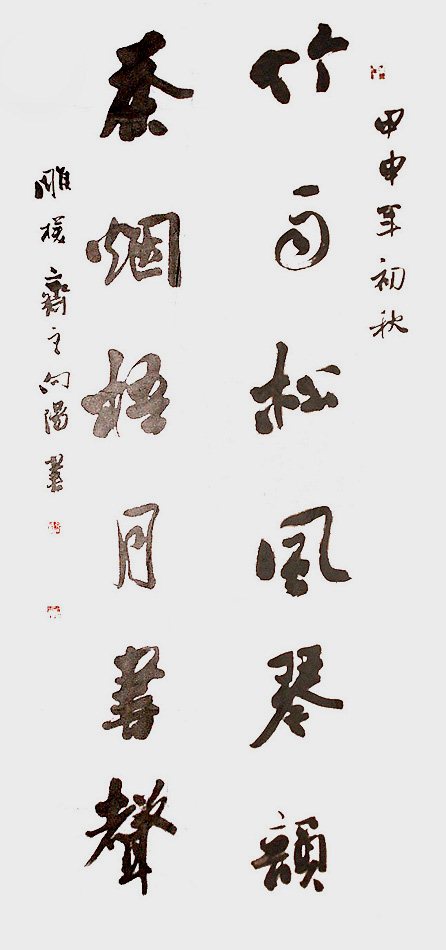 甲申年初秋
竹雨松風琴韻
茶烟梧月書聲
雕樸齋主向陽書